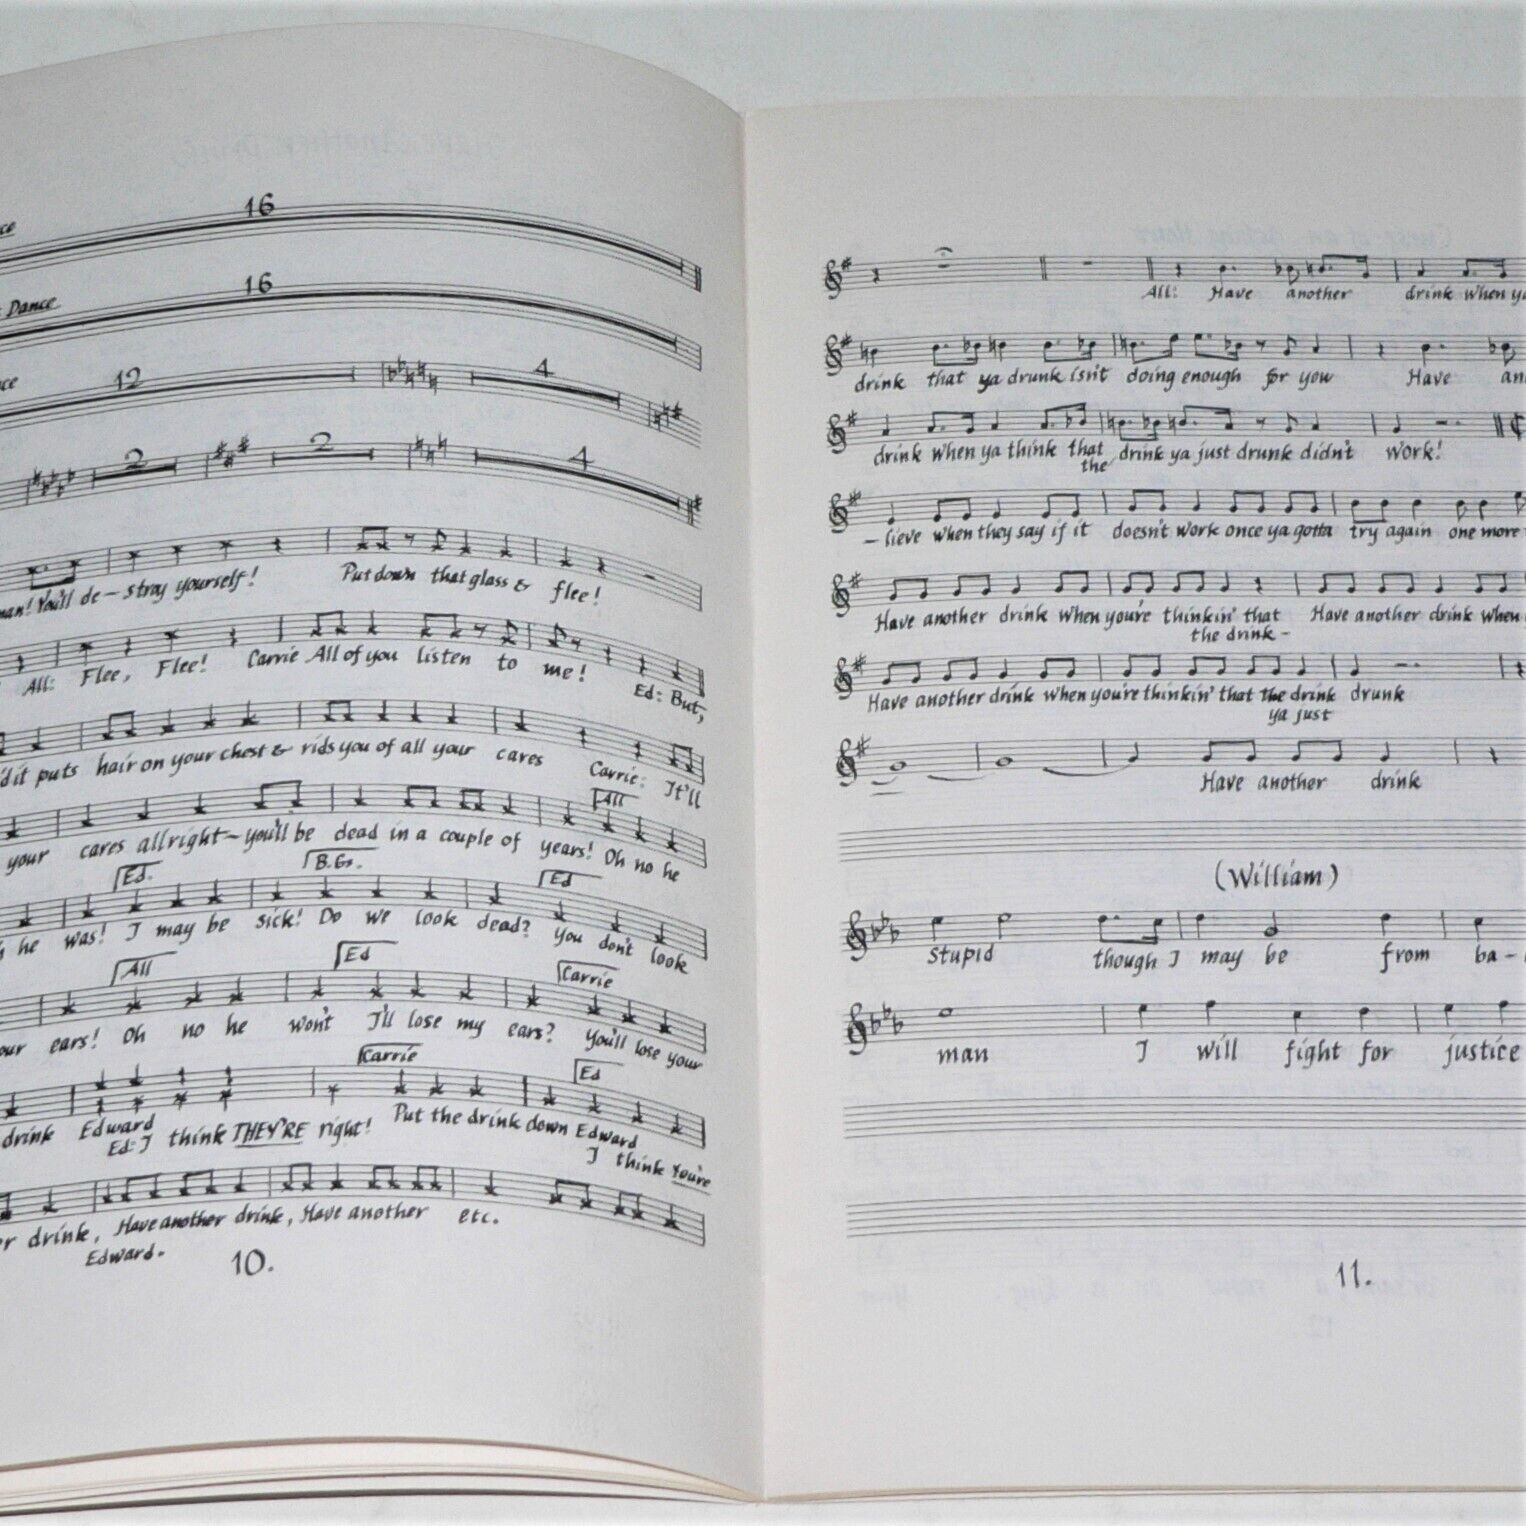 16
16
Dance
12
4
2
2
4
You'll de-stroy yourself! Put down that glass & flee!
All: Flee, Flee! Carrie All of you listen to me! Ed: But,
it puts hair on your chest & rids you of all your cares Carrie: It'll
All
your cares allright-you'll be dead in a couple of years! Oh no he
Ed. B.G. Ed
he was! I may be sick! Do we look dead? You don't look
All Ed Carrie
ears! Oh no he won't I'll lose my ears? You'll lose your
Carrie Ed
drink Edward Put the drink down Edward
Ed: I think THEY'RE right! I think You're
drink, Have another drink, Have another etc.
Edward.
10.
All: Have another drink when ya
drink that ya drunk isn't doing enough for you Have
drink when ya think that drink ya just drunk didn't work!
the
-lieve when they say if it doesn't work once ya gotta try again one more
Have another drink when you're thinkin' that Have another drink when
the drink-
Have another drink when you're thinkin' that the drink drunk
ya just
Have another drink
(William)
Stupid though I may be from ba-
man I will fight for justice
11.